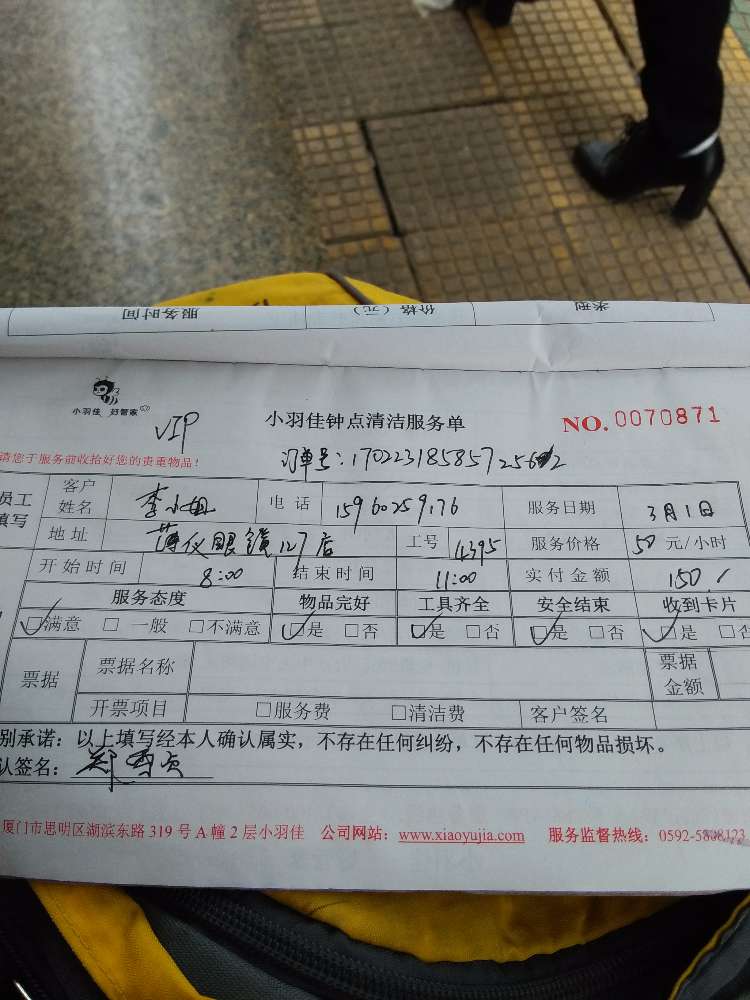 服务时间 价格（元） 类型
小羽佳 妇管家
VIP 小羽佳钟点清洁服务单 NO.0070871
请您于服务前收拾好您的贵重物品！ 订单号：
员工填写 客户姓名 李小姐 电话 15960259176 服务日期 3月1日
地址 薄仪眼镜127店 工号 4395 服务价格 50元/小时
开始时间 8:00 结束时间 11:00 实付金额 150
服务态度 物品完好 工具齐全 安全结束 收到卡片
☑满意 □一般 □不满意 ☑是 □否 ☑是 □否 ☑是 □否 ☑是 □否
票据 票据名称 票据金额
开票项目 □服务费 □清洁费 客户签名
别承诺：以上填写经本人确认属实，不存在任何纠纷，不存在任何物品损坏。
认签名：
厦门市思明区湖滨东路319号A幢2层小羽佳 公司网站：www.xiaoyujia.com 服务监督热线：